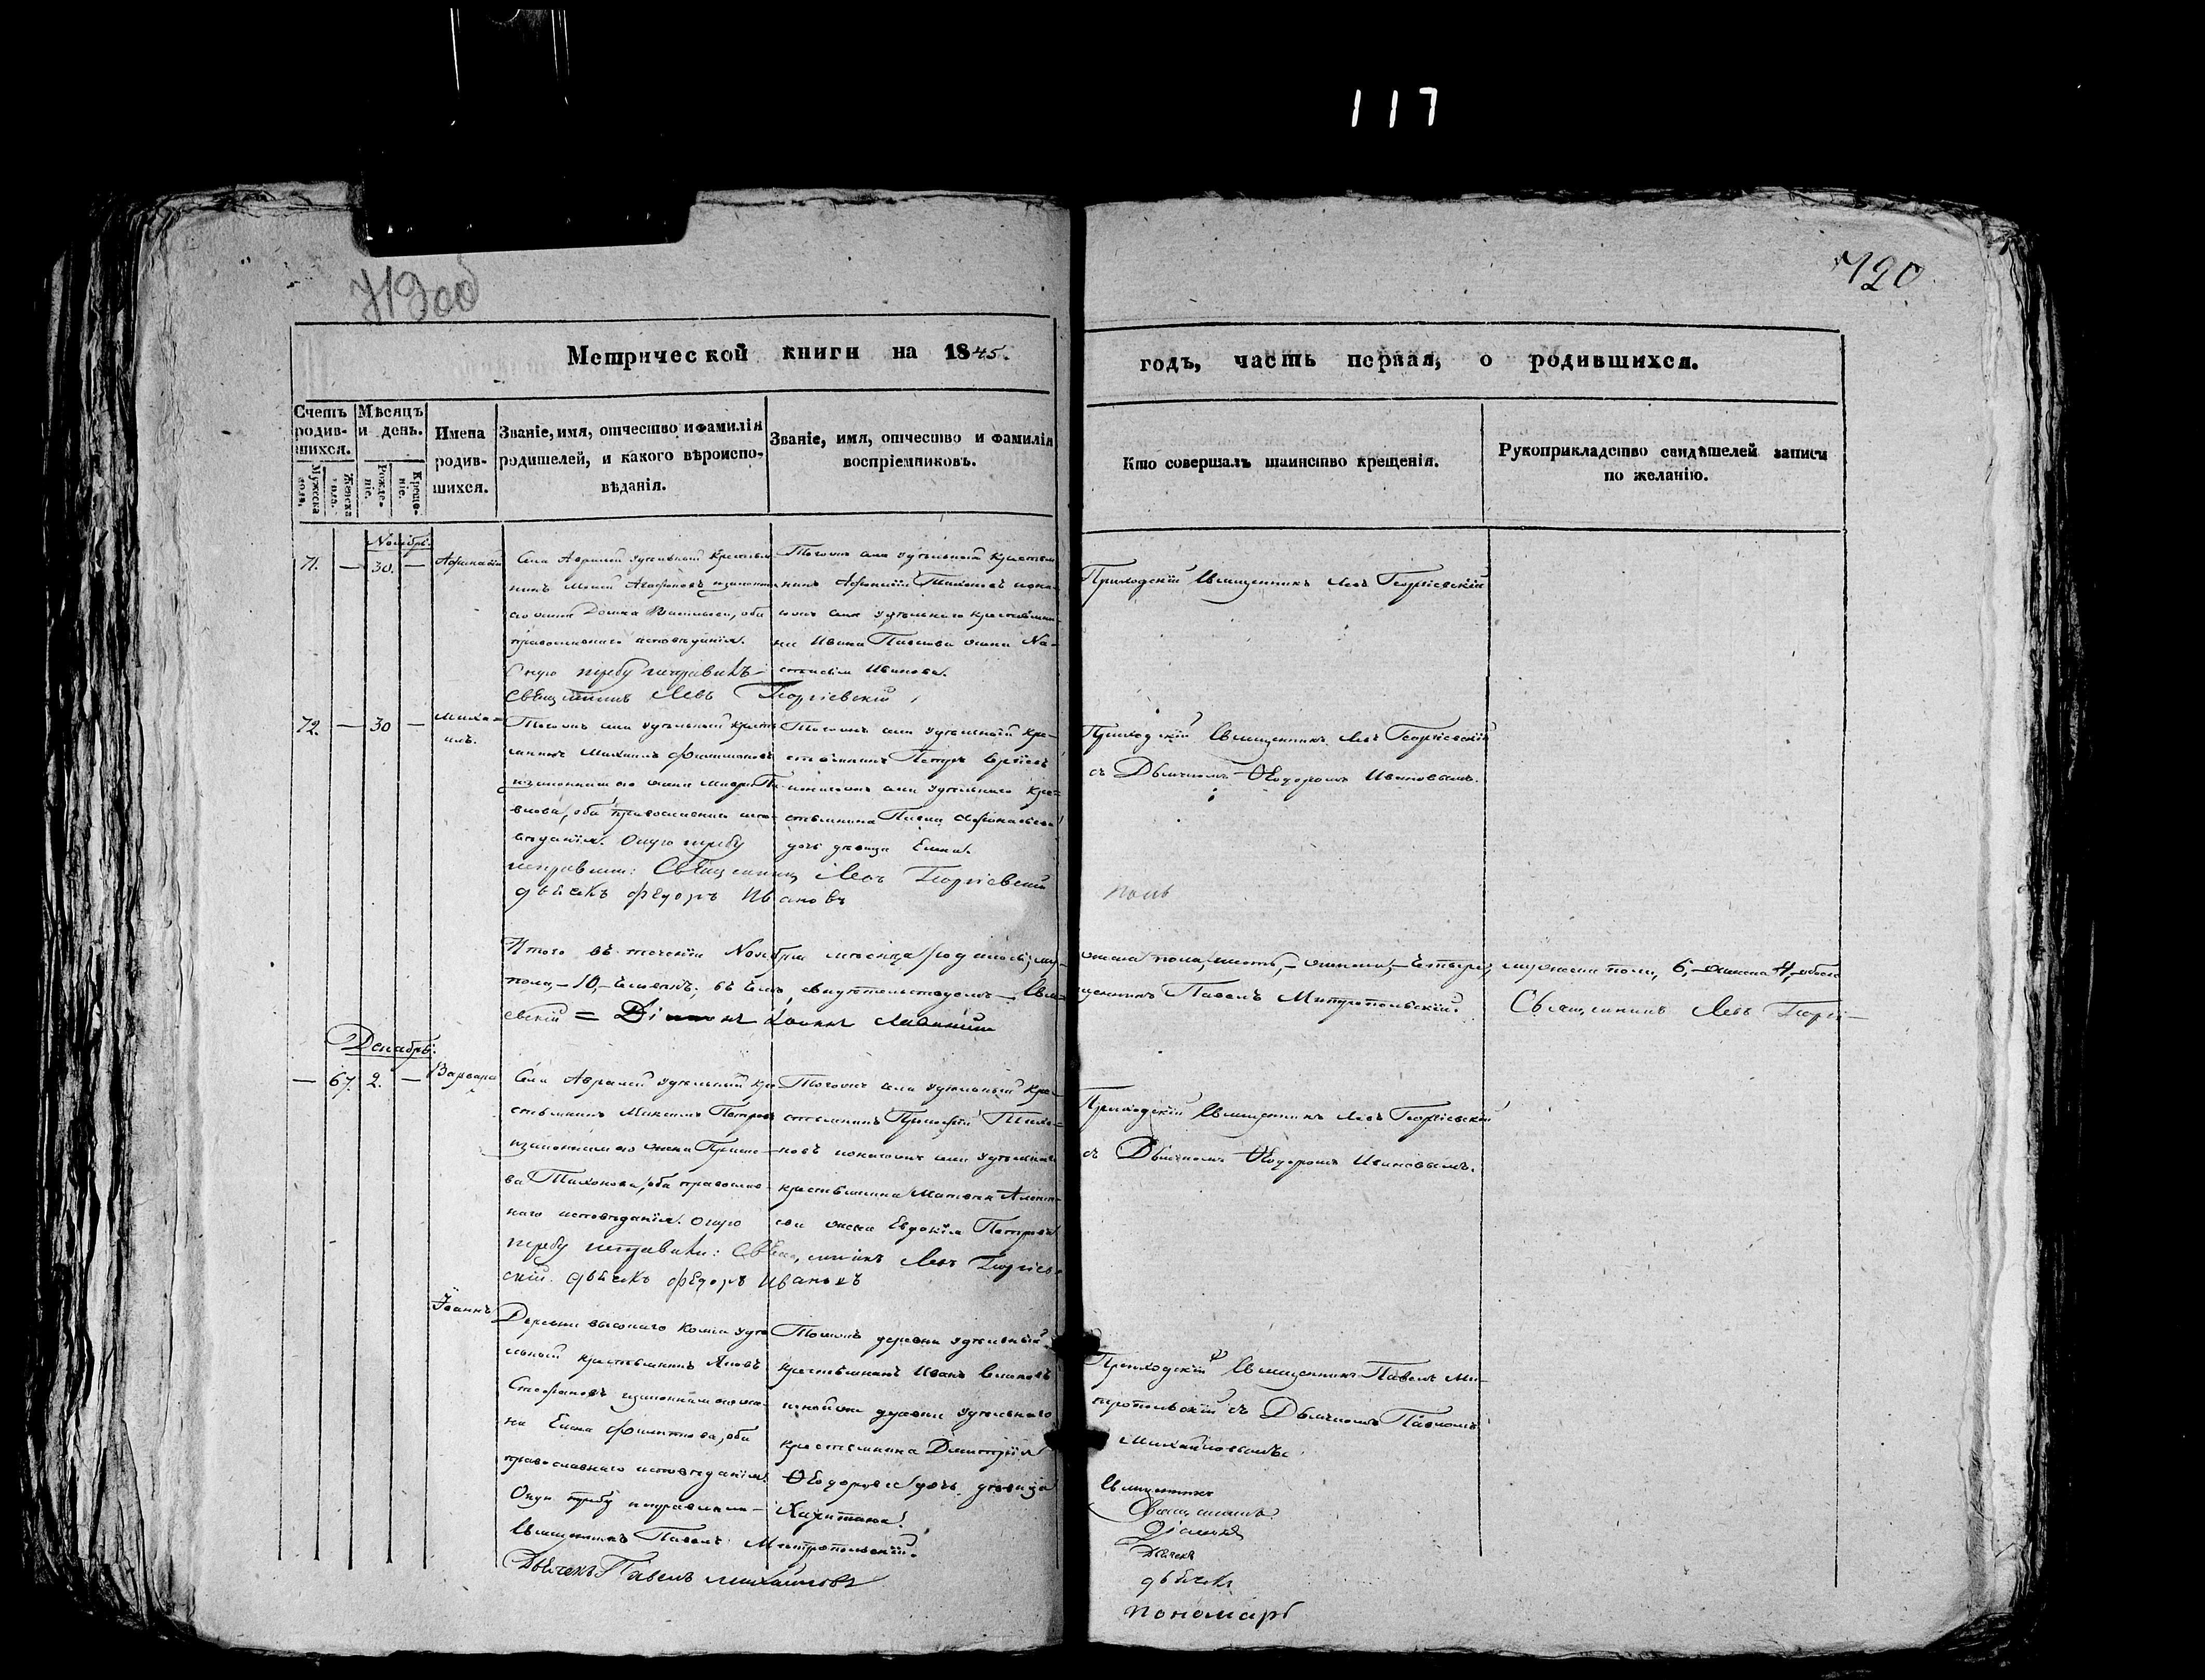 117
719 об
720
Метрической книги на 1845.
годъ, часть первая, о родившихся.
Счетъ родив-шихся.
Мужеска пола.
Женска пола.
Мѣсяцъ и день.
Рожде-ніе.
Креще-ніе.
Имена
родив-
шихся.
Званіе, имя, отчество и фамилія
родителей, и какого вѣроиспо-
вѣданія.
Званіе, имя, отчество и фамилія
воспріемниковъ.
Кто совершалъ таинство крещенія.
Рукоприкладство свидѣтелей записи
по желанію.
Ноябрь.
71. — 30. — Афанасій
Села Аврамей удѣльный крестья-
нинъ Агафоновъ законная
его жена Васильева, оба
православнаго исповѣданія.
Оную требу исправилъ
Священникъ Левъ Георгіевскій
Тогожъ села удѣльный крестья-
нинъ Афанасій Тихоновъ
тогожъ села удѣльнаго крестьяни-
на Ивана Павлова жена На-
стасья Иванова.
Приходскій Священникъ Левъ Георгіевскій
72. — 30 — Миха-
илъ.
Тогожъ села удѣльный кресть-
янинъ Михаилъ Филимоновъ
и законная его жена Марья Па-
влова, оба православнаго испо-
вѣданія. Оную требу
исправили: Священникъ Левъ Георгіевскій
дьячекъ Федоръ Ивановъ
Тогожъ села удѣльный кре-
стьянинъ Петръ Сергѣевъ
и тогожъ села удѣльнаго кре-
стьянина Павла Афанасьева
дочь девица Елена.
Приходскій Священникъ Левъ Георгіевскій
съ Дьячкомъ Ѳеодоромъ Ивановымъ.
Итого въ теченіи Ноября месяца родилось: му-
жеска пола, шесть, — женска, — четыре,
пола, — 10, — человѣкъ; въ чемъ свидѣтельствуемъ — Свя-
щенникъ Павелъ Митропольскій.
Священникъ Левъ Георгі-
евскій =
Декабрь.
— 67. 2. — Варвара
Села Аврамей удѣльный кре-
стьянинъ Максимъ Петровъ
и законная его жена Праско-
вья Тихонова, оба православ-
наго исповѣданія. Оную
требу исправили: Священникъ Левъ Георгіев-
скій. дьячекъ Федоръ Ивановъ
Тогожъ села удѣльный кре-
стьянинъ Прокофій Тихо-
новъ и тогожъ села удѣльнаго
крестьянина Матвея Алексѣ-
ева жена Евдокія Петрова.
Приходскій Священникъ Левъ Георгіевскій
съ Дьячкомъ Ѳеодоромъ Ивановымъ.
Іоаннъ
Деревни удѣ-
льный крестьянинъ Яковъ
Стефановъ и законная его же-
на Елена Филиппова, оба
православнаго исповѣданія.
Оную требу исправляли —
Священникъ Павелъ Митропольскій.
Дьячекъ Павелъ Михайловъ
Тойжъ деревни удѣльный
крестьянинъ Иванъ
и тойжъ деревни удѣльнаго
крестьянина Дмитрія
Ѳеодорова дочь девица
Харитина.
Приходскій Священникъ Павелъ Ми-
тропольскій съ Дьячкомъ Павломъ
Михайловымъ.
Священникъ
Священникъ
Діаконъ
Дьячекъ
дьячекъ
пономарь